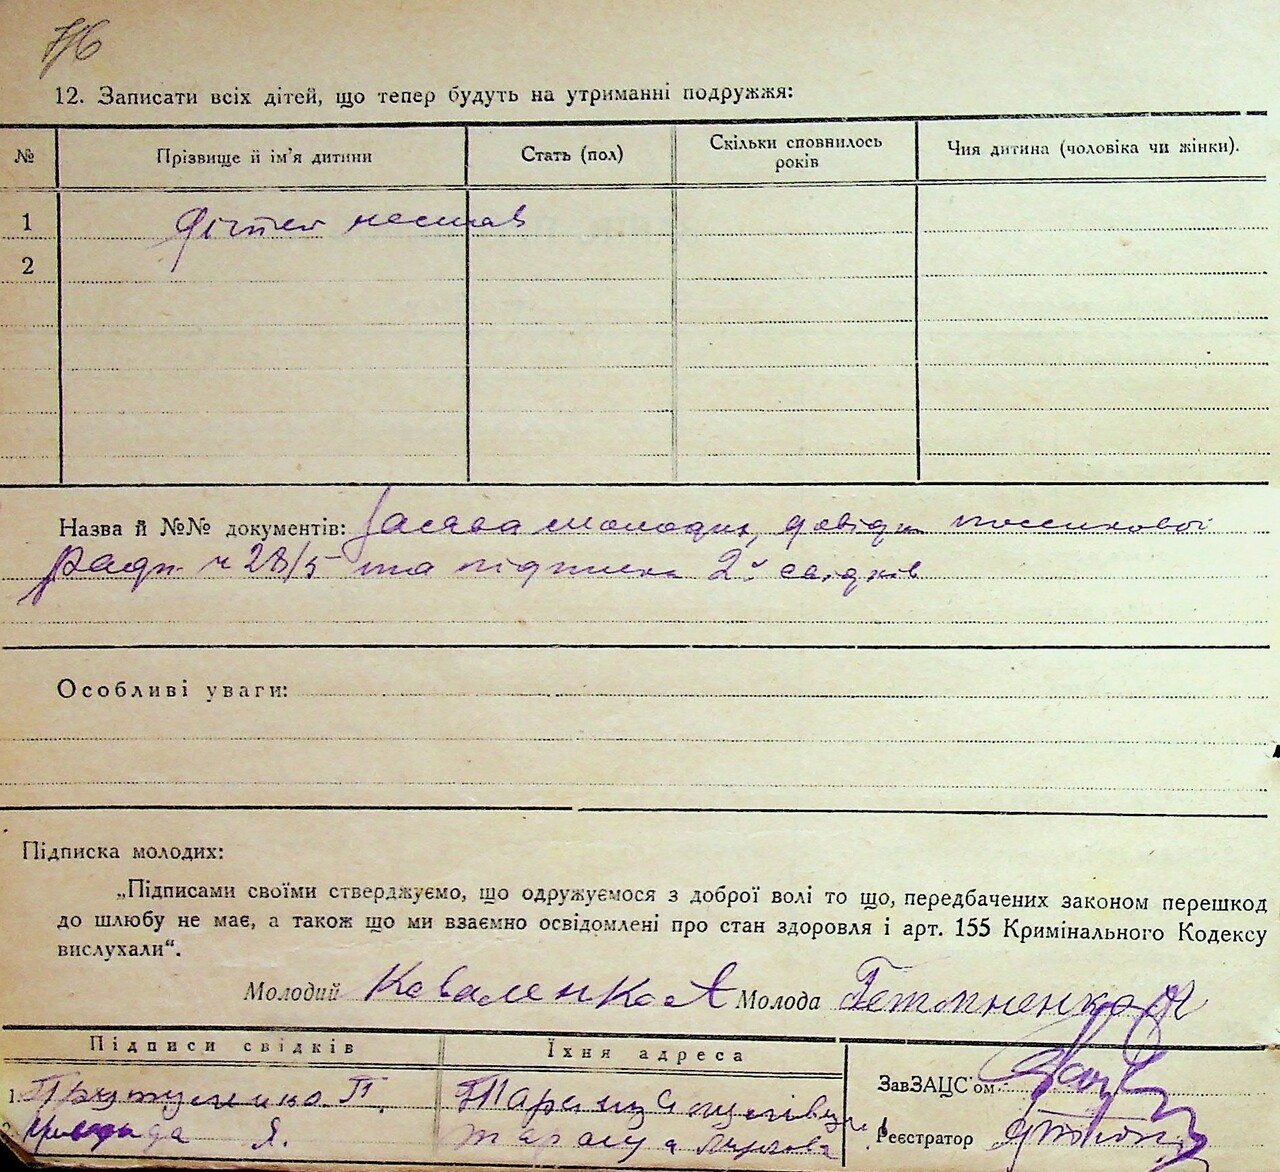 12. Записати всіх дітей, що тепер будуть на утриманні подружжя:
№ Прізвище й ім'я дитини Стать (пол) Скільки сповнилось років Чия дитина (чоловіка чи жінки).
1 Дітей немає
2
Назва й №№ документів: Заява молодих, довідка
ради ч 28/5 та підписка 2х свідків
Особливі уваги:
Підписка молодих:
„Підписами своїми стверджуємо, що одружуємося з доброї волі то що, передбачених законом перешкод
до шлюбу не має, а також що ми взаємно освідомлені про стан здоровля і арт. 155 Кримінального Кодексу
вислухали“.
Молодий Коваленко А Молода
Підписи свідків Їхня адреса
ЗавЗАЦС'ом
1.
Реєстратор